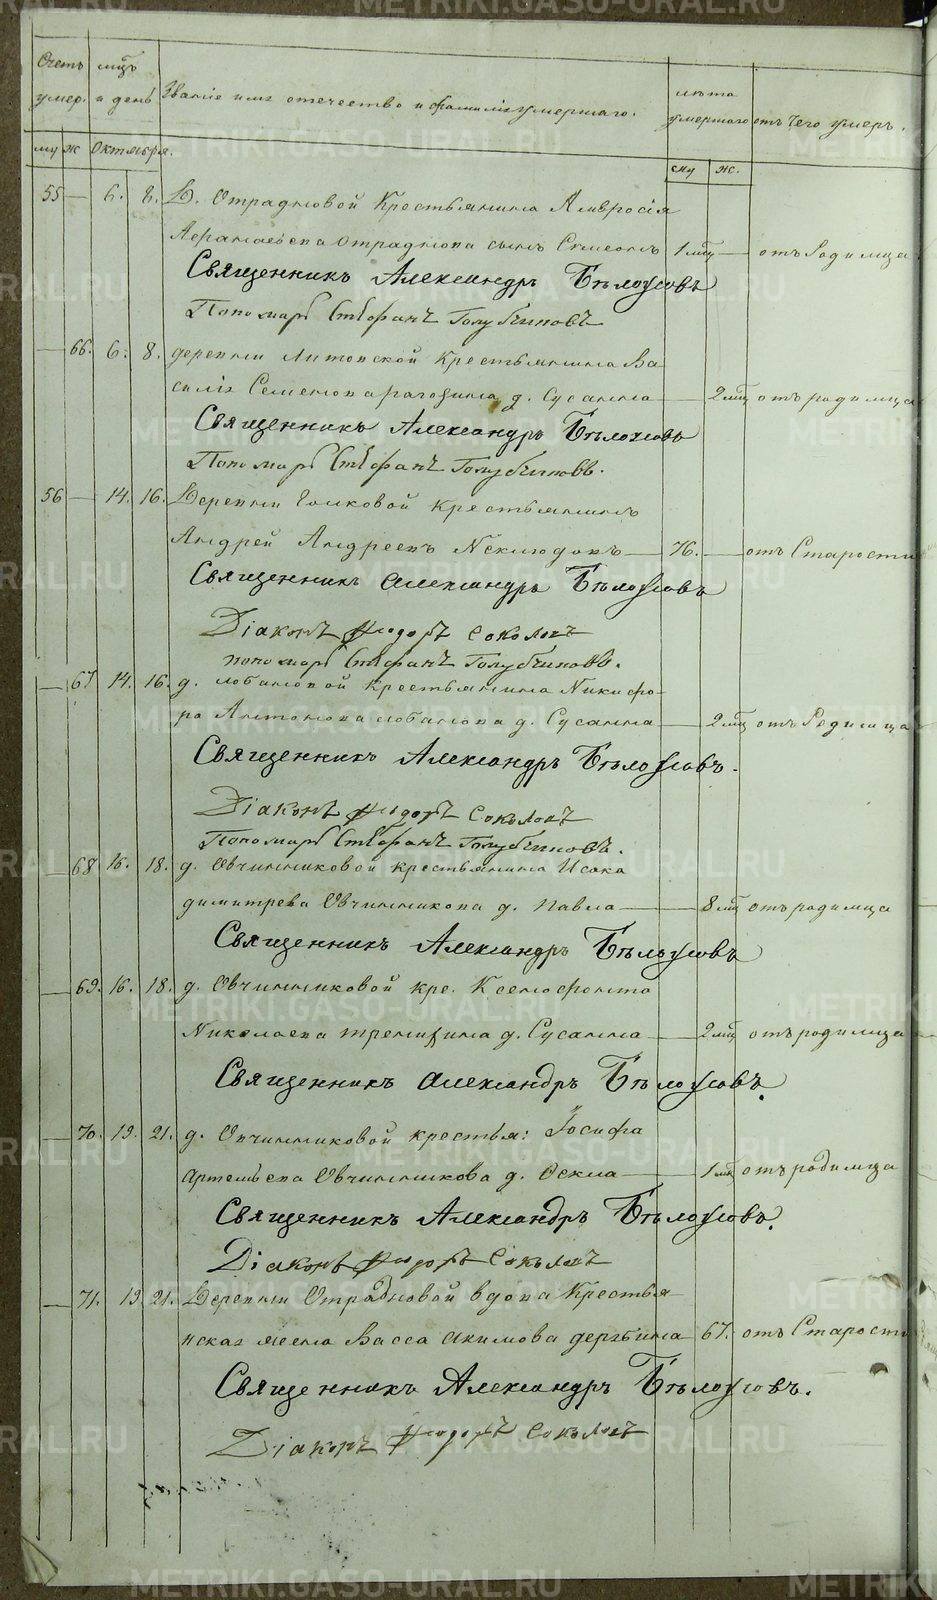 Счетъ мцъ
умер. и день Званiе имя отечество и фамилiя умершаго. лѣта
умершаго отъ чего умеръ.
му ж Октября. му ж.
55 — 6. 8. Д. Отрадновой Крестьянина Амвросiя
Отраднова сынъ Симеонъ 1 мц — отъ Родимца
Священникъ Александръ Бѣлоусовъ
Пономарь Стефанъ Голубчиковъ
— 66. 6. 8. деревни крестьянина Ва
силiя Семенова рагозина д. Сусанна — 2 мц отъ родимца
Священникъ Александръ Бѣлоусовъ
Пономарь Стефанъ Голубчиковъ.
56 — 14. 16. Деревни крестьянинъ
Андрей Андреевъ Неклюдовъ — 76. — отъ Старости
Священникъ Александръ Бѣлоусовъ
Дiаконъ Ѳеодоръ Соколовъ
пономарь Стефанъ Голубчиковъ.
— 67 14. 16. д. лобановой крестьянина Никифо
ра Антонова лобанова д. Сусанна — 2 мц отъ Родимца
Священникъ Александръ Бѣлоусовъ.
Дiаконъ Ѳеодоръ Соколовъ
Пономарь Стефанъ Голубчиковъ.
— 68 16. 18. д. Овчинниковой крестьянина Исака
димитрева Овчинникова д. Павла — 8 мц отъ родимца
Священникъ Александръ Бѣлоусовъ
— 69. 16. 18. д. Овчинниковой кре. Ксенофонта
Николаева д. Сусанна — 2 мц отъ родимца
Священникъ Александръ Бѣлоусовъ.
— 70. 19. 21. д. Овчинниковой крестья: Iосифа
Артемьева Овчинникова д. — 1 мц отъ родимца
Священникъ Александръ Бѣлоусовъ.
Дiаконъ Ѳеодоръ Соколовъ
— 71. 19 21. Деревни Отрадновой вдова Крестья
нская жена Васса Акимова дерябина 67. отъ Старости
Священникъ Александръ Бѣлоусовъ.
Дiаконъ Ѳеодоръ Соколовъ
METRIKI.GASO-URAL.RU